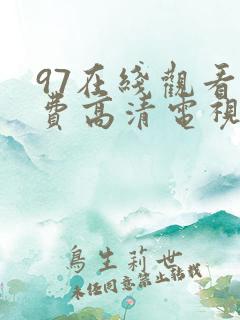 97在綫觀看
費高清電視
鳥生莉世
未经同意禁止轉載